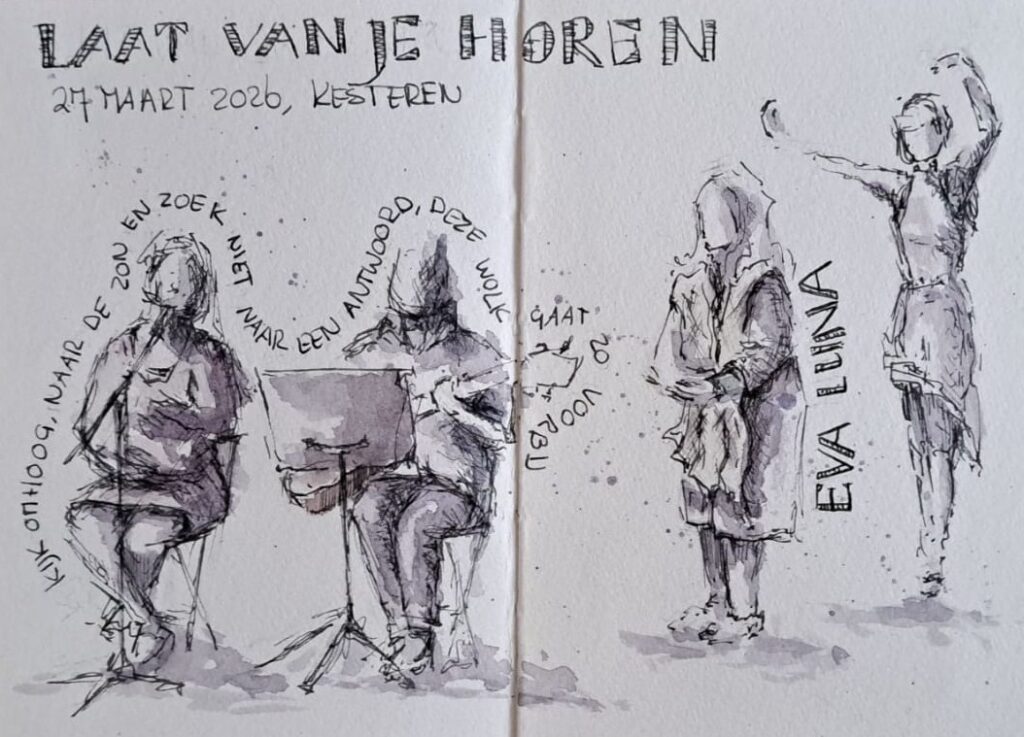 LAAT VAN JE HOREN
27 MAART 2026, KESTEREN
KIJK OMHOOG, NAAR DE ZON EN ZOEK NIET NAAR EEN ANTWOORD, DEZE WOLK GAAT ZO VOORBIJ
EVA LUNA